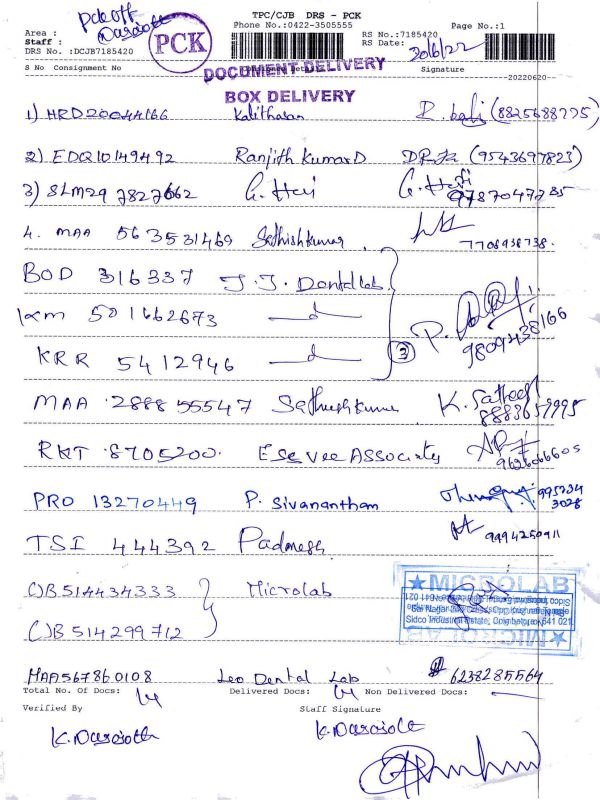 TPC/CJB DRS - PCK
Phone No.:0422-3505555
Page No.:1
Area : PCK off
Staff :
DRS No. :DCJB7185420
PCK
RS No.:7185420
RS Date: 20/6/22
S No Consignment No
Signature
--20220620--
DOCUMENT DELIVERY
BOX DELIVERY
1) HRD20044166 Kalitharan (8825688775)
2) EDQ10149492 Ranjith Kumar D (9543697823)
3) SLM29 7827662 G. Hari G. Hari 9787047785
4. MAA 563531469 Sathishkumar 7708938738.
BOD 316337 J.J. Dental Lab
KM 501662673
KRR 5412946 3 P. 9809438166
MAA 288855547 Sathishkumar K. Satheesh 8883659995
RKT 8705200 Esevee Associates
PRO 13270449 P. Sivanantham 995734 3028
TSI 444392 Padmesh 9994250911
CJB514434333 Microlab
CJB514299712
MICROLAB
Sidco Industrial Estate, Coimbatore 641 021
MAA567860108 Leo Dental Lab 6238285564
Total No. Of Docs: 14 Delivered Docs: 14 Non Delivered Docs: —
Verified By Staff Signature